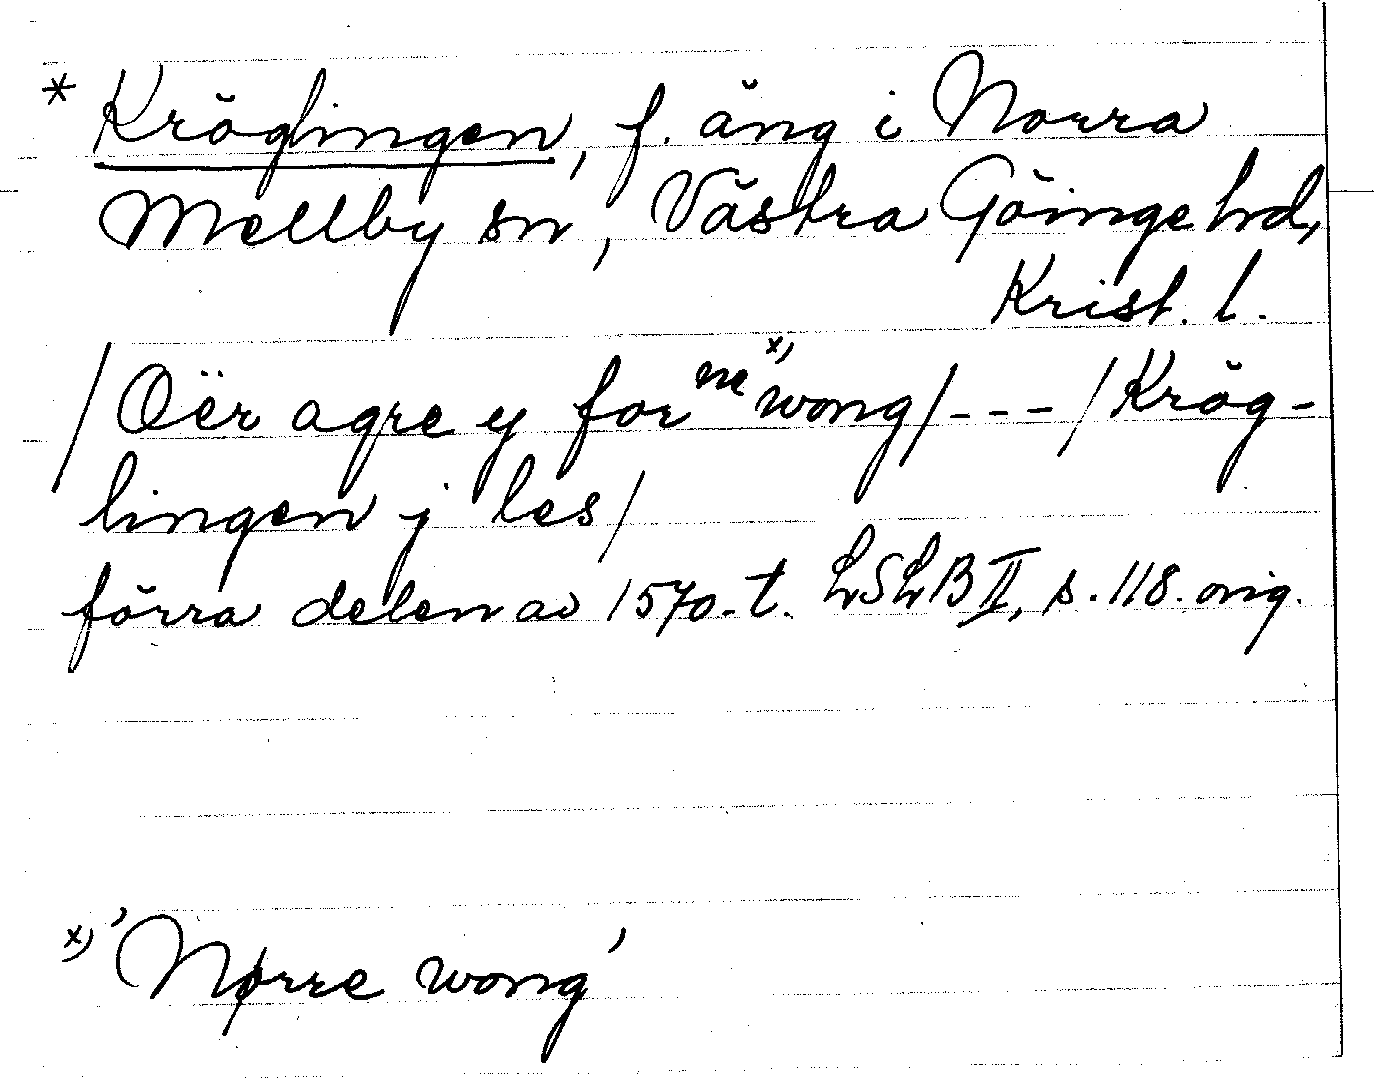 * Kröglingen, f. äng i Norra
Mellby sn, Västra Göinge hd,
Krist. l.
/Oër agre y for ne x) wong/ - - - /Krög-
lingen j les/
förra delen av 1570-t. LSLB II, s. 118. orig.
x) 'Nørre wong'